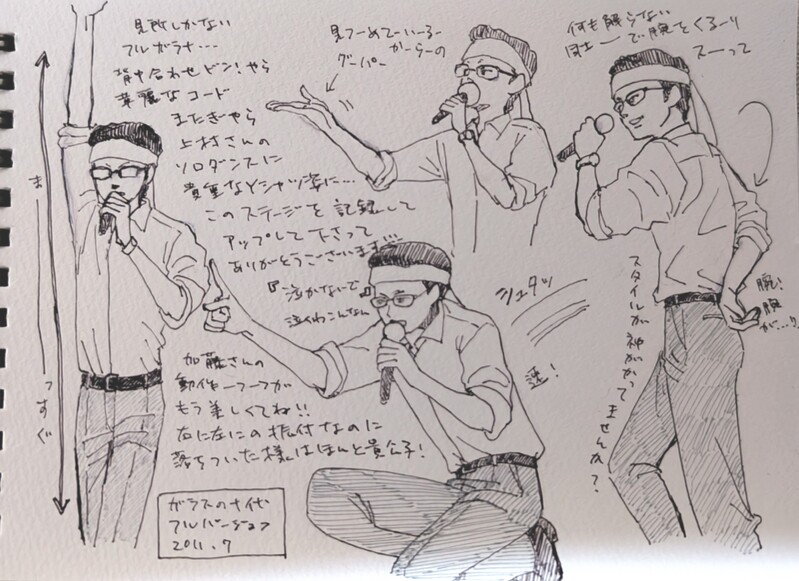 見所しかない
フルガラナ…
背中合わせドン!やら
華麗なコード
またぎやら
上村さんの
ソロダンスに
貴重なYシャツ姿に…
このステージを記録して
アップして下さって
ありがとうございます…
『泣かないで』
泣くわこんなん
見つーめてーいーるー
かーらーの
グーパー
何も触らない
同士ーで腕をくるーり
スーって
まーーっすぐ
シュタッ
速!
腕!
腕が…!!
スタイルが神がかってませんか?
加藤さんの
動作一つ一つが
もう美しくてね!!
右に左にの振付なのに
落ちついた様はほんと貴公子!
ガラスの十代
フルバージョン
2011.7